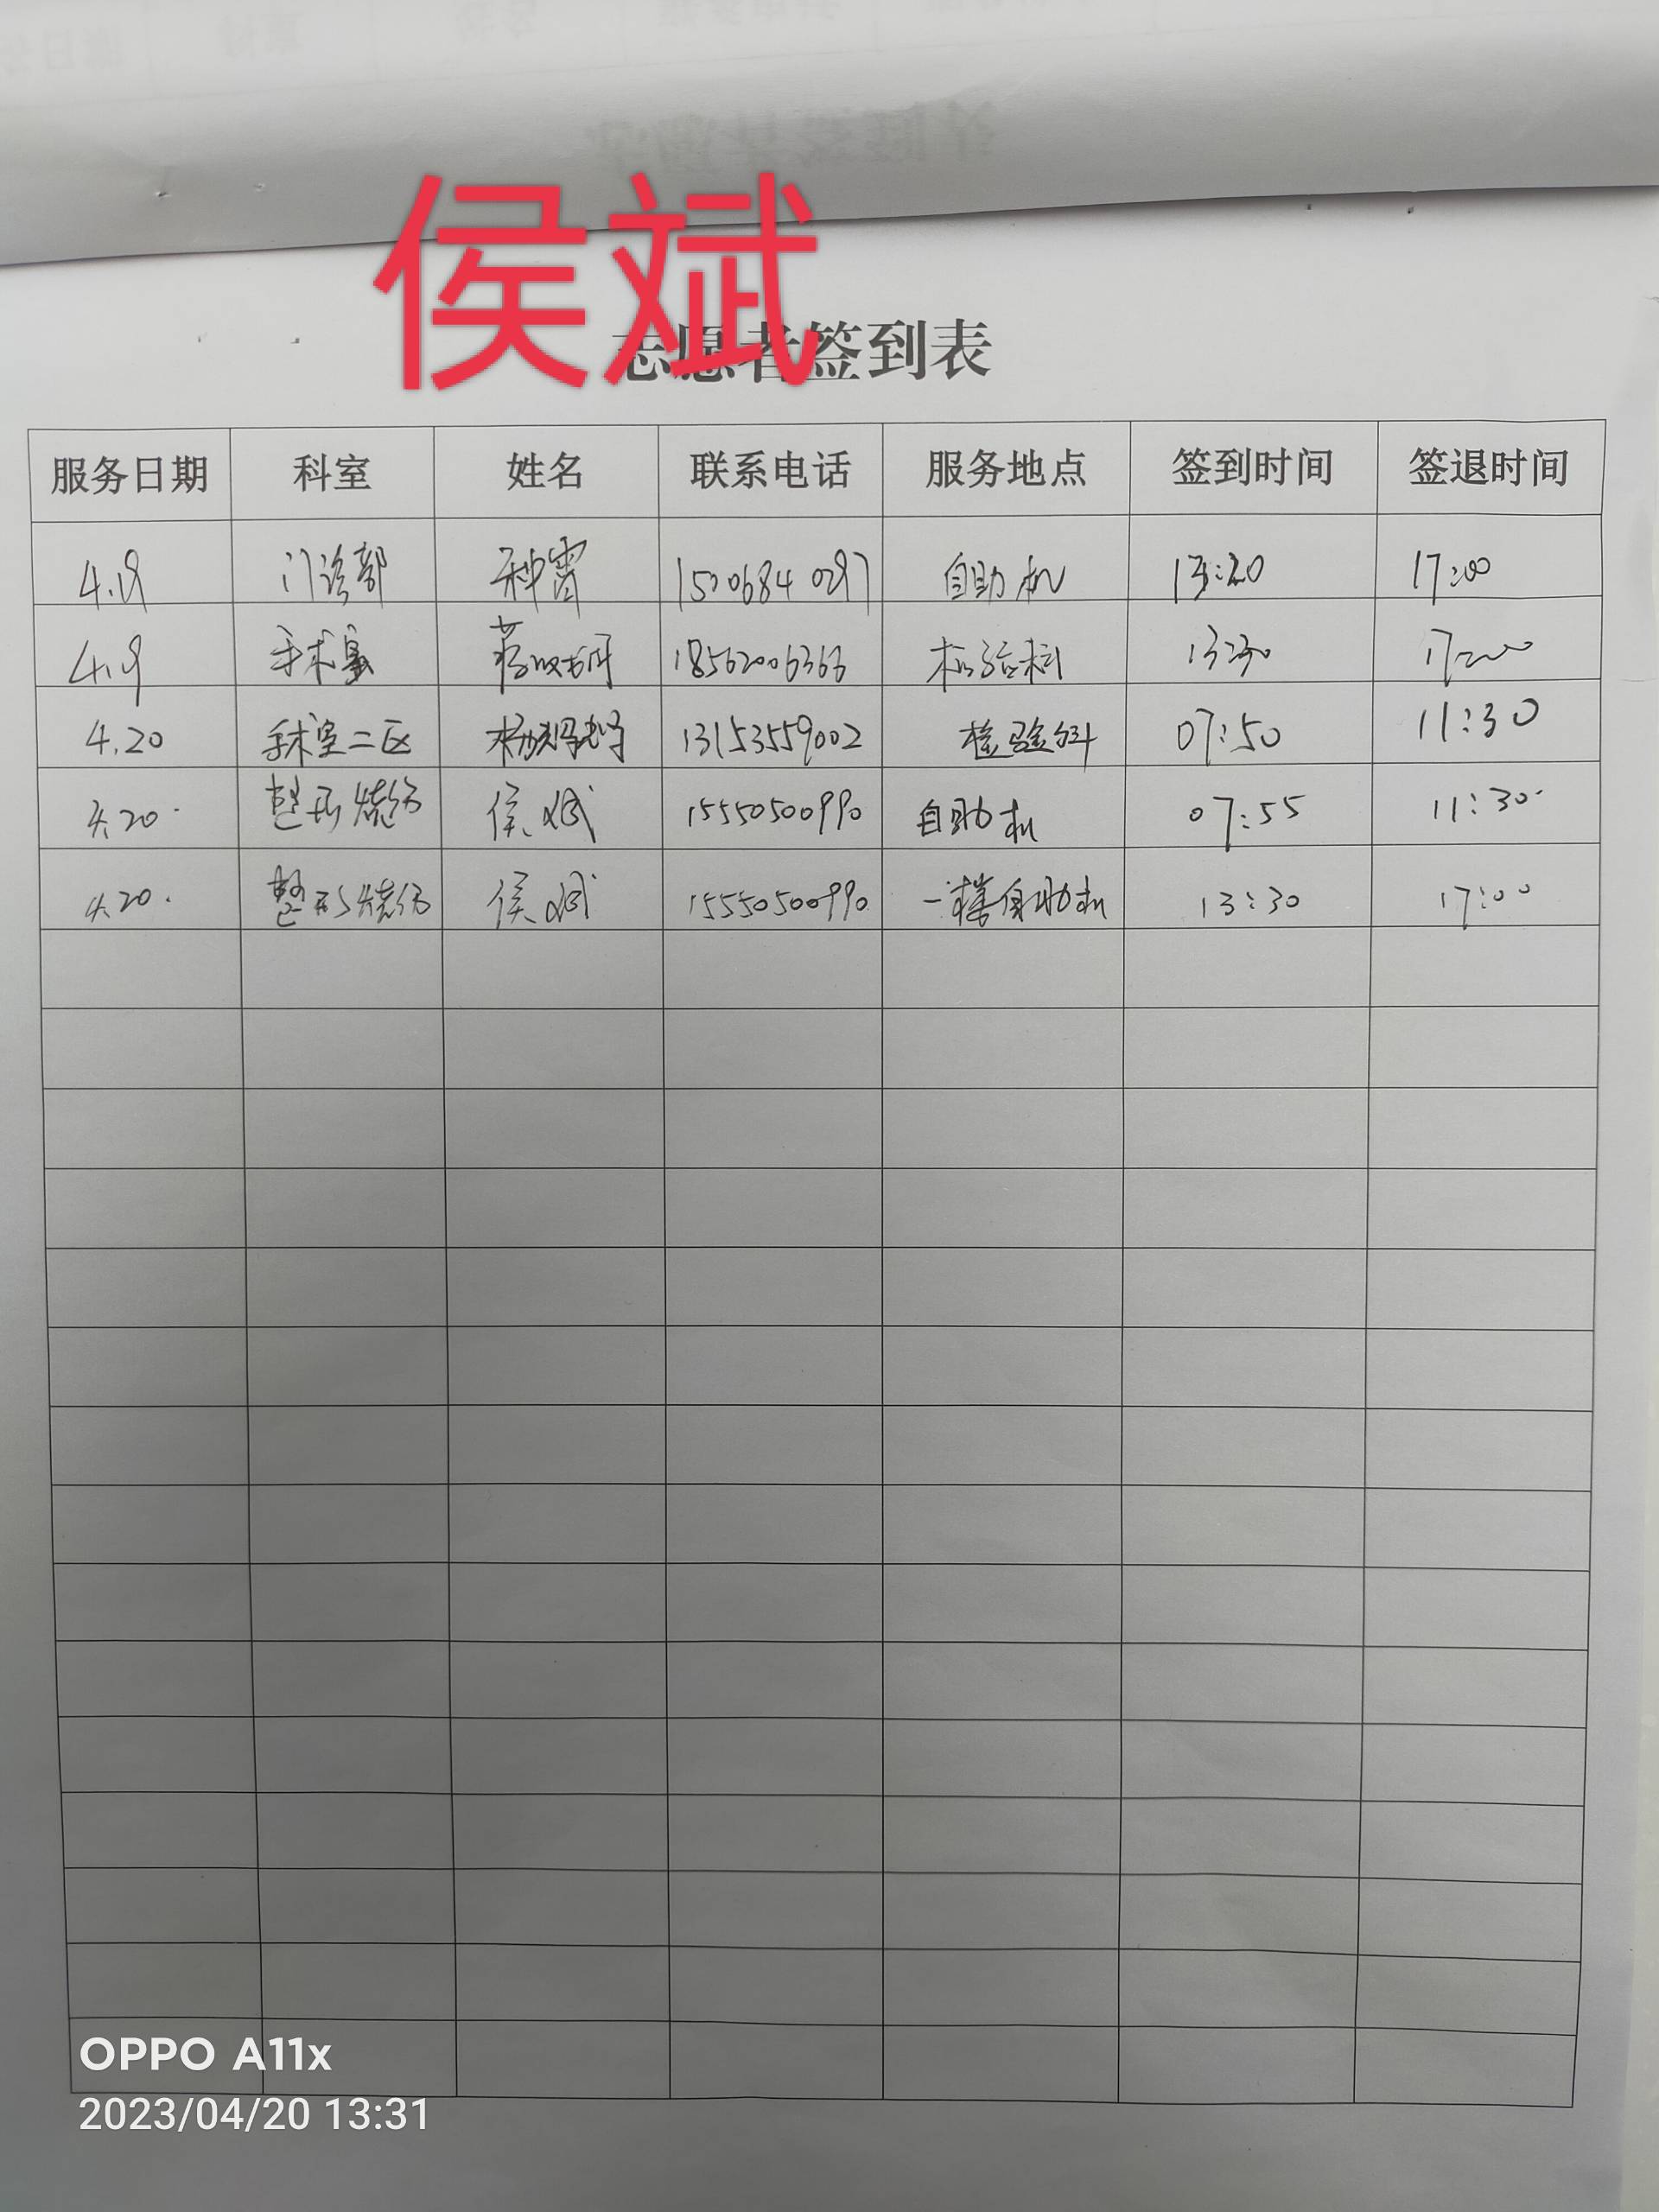 侯斌
志愿者签到表
服务日期 科室 姓名 联系电话 服务地点 签到时间 签退时间
4.19 门诊部 自助机 17:00
4.19 手术室 18562006366 检验科 13:30 17:00
4.20 手术室二区 13153559002 检验科 07:50 11:30
4.20 整形烧伤 侯斌 15550500990 自助机 07:55 11:30
4.20. 整形烧伤 侯斌 15550500990 一楼自助机 13:30 17:00
OPPO A11x
2023/04/20 13:31